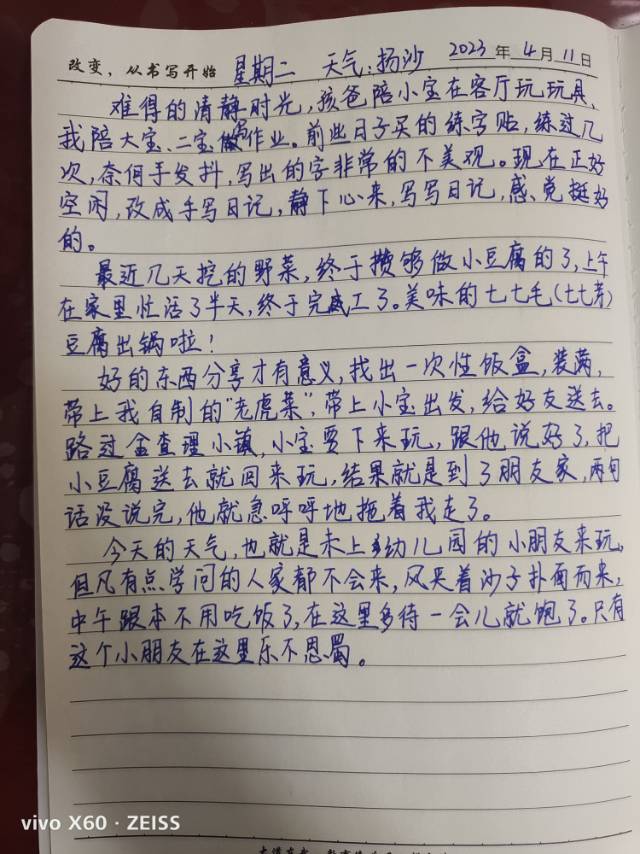 改变，从书写开始 星期二 天气：扬沙 2023年4月11日
难得的清静时光，孩爸陪小宝在客厅玩玩具，
我陪大宝、二宝做写作业。前些日子买的练字贴，练过几
次，奈何手发抖，写出的字非常的不美观。现在正好
空闲，改成手写日记，静下心来，写写日记，感觉挺好
的。
最近几天挖的野菜，终于攒够做小豆腐的了，上午
在家里忙活了半天，终于完成工了。美味的七七毛(七七芽)
豆腐出锅啦！
好的东西分享才有意义，找出一次性饭盒，装满，
带上我自制的"老虎菜"，带上小宝出发，给好友送去。
路过金查理小镇，小宝要下来玩，跟他说好了，把
小豆腐送去就回来玩，结果就是到了朋友家，两句
话没说完，他就急呼呼地拖着我走了。
今天的天气，也就是未上幼儿园的小朋友来玩，
但凡有点学问的人家都不会来，风夹着沙子扑面而来，
中午跟本不用吃饭了，在这里多待一会儿就饱了。只有
这个小朋友在这里乐不思蜀。
vivo X60 · ZEISS